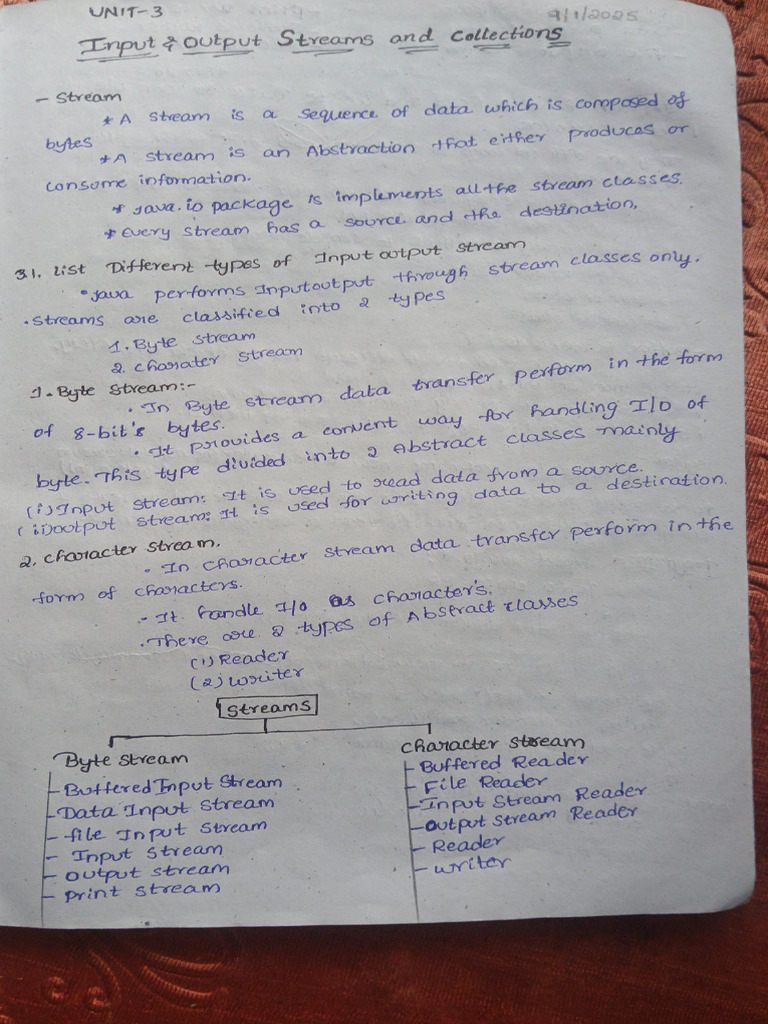 UNIT-3
9/1/2025
Input & Output Streams and Collections
- Stream
* A stream is a sequence of data which is composed of
bytes
* A stream is an Abstraction that either produces or
consome information.
* java.io package is implements all the stream classes.
* Every stream has a source and the destination,
3.1. List Different types of Input output stream
• java performs Inputoutput through stream classes only.
• Streams are classified into 2 types
1. Byte stream
2. charater stream
1. Byte Stream:-
• In Byte stream data transfer perform in the form
of 8-bit's bytes.
• It provides a convent way for handling I/O of
byte. This type divided into 2 Abstract classes mainly
(i) Input stream: It is used to read data from a source.
(ii) output stream: It is used for writing data to a destination.
2. character stream.
• In character stream data transfer perform in the
form of characters.
- It handle I/O as character's.
• There are 2 types of Abstract classes
(1) Reader
(2) writer
Streams
Byte stream
character stream
- Buffered Input Stream
- Data Input stream
- file Input Stream
- Input Stream
- output stream
- print stream
- Buffered Reader
- File Reader
- Input Stream Reader
- output Stream Reader
- Reader
- writer